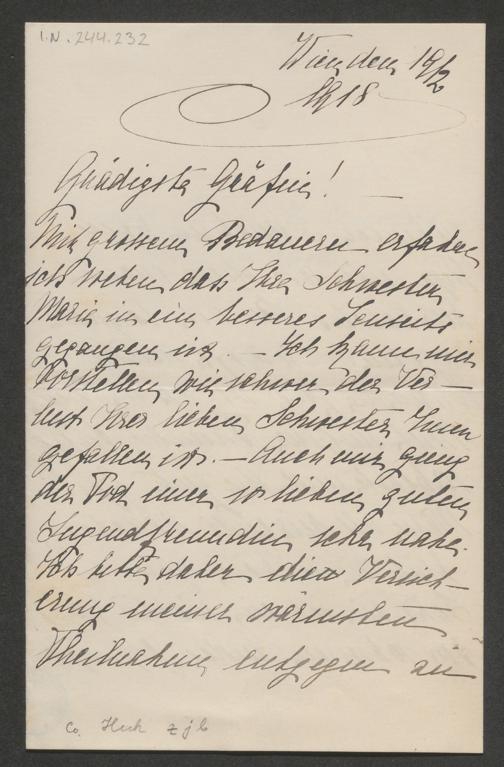 I.N. 244.232
Wien den 19/2
1918
Gnädigste Gräfin!
Mit grossem Bedauern erfahre
ich soeben dass Ihre Schwester
Maria in ein besseres Jenseits
gegangen ist. — Ich kann mir
vorstellen wie schwer der Ver-
lust Ihrer lieben Schwester Ihnen
gefallen ist. — Auch mir gieng
der Tod einer so lieben guten
Jugendfreundin sehr nahe.
Ich bitte daher diese Versich-
erung meiner wärmsten
Theilnahme entgegen zu
Co.